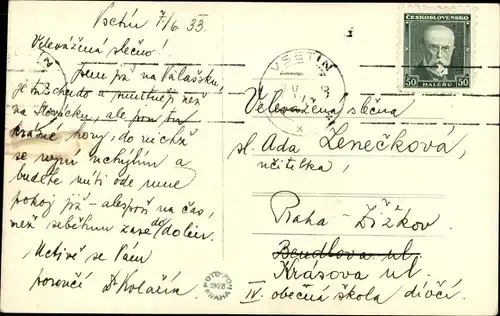 Vsetín 7/6 33.
Velevážená slečno!
Jsem již na Valašsku,
je to zchudo a smutněji než
na Slovácku, ale jsou tu
krásné hory, do nichž
se nyní uchýlím a
budete míti ode mne
pokoj již alespoň na čas,
než seběhnu zase do dolin.
Uctivě se Vám
poroučí Dr Kolařík
FOTO-FON
1928
PRAHA
VSETÍN
ČESKOSLOVENSKO
50 HALÉŘŮ 50
Velevážená slečna
sl. Ada Lenečková,
učitelka,
Praha-Žižkov
Bendlova ul.
Krásova ul.
IV. obecná škola dívčí.